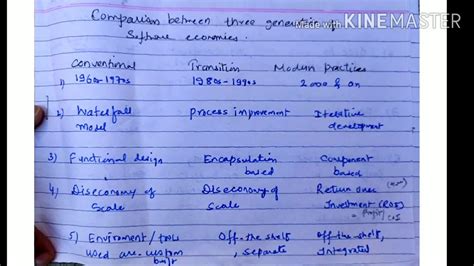 Comparison between three generation of
Made with KINEMASTER
Software economies.
Conventional Transition Modern practices
1) 1960s-1970s 1980s-1990s 2000 & on
2) Waterfall process improvement Iterative
model development
3) Functional design Encapsulation Component
based based
4) Diseconomy of Diseconomy of Return on
Scale Scale Investment (ROI)
5) Environment/tools Off-the-shelf Off-the-shelf,
used are custom , separate Integrated
built